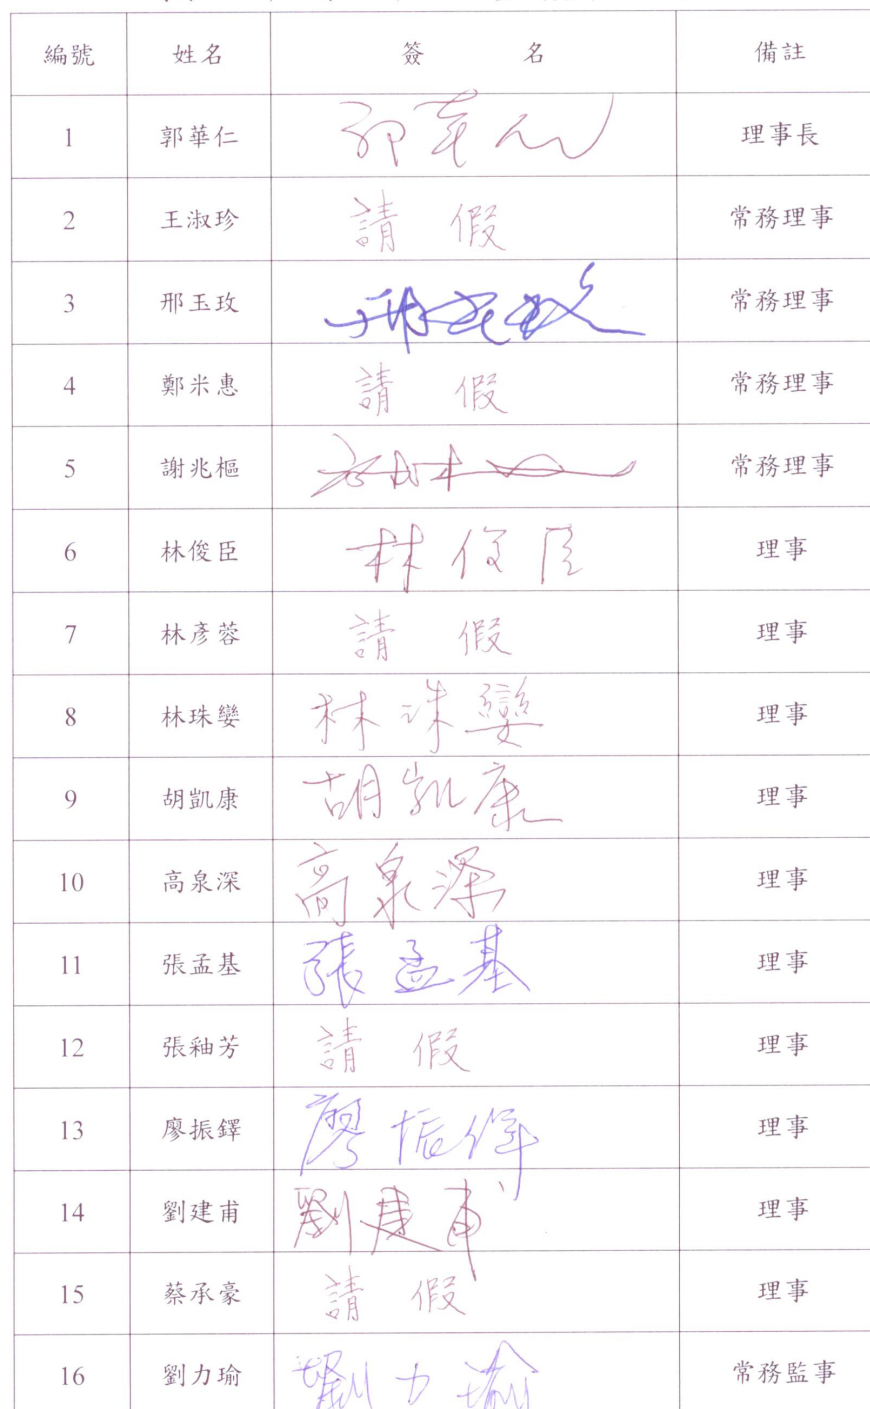 編號 姓名 簽名 備註
1 郭華仁 郭華仁 理事長
2 王淑珍 請假 常務理事
3 邢玉玫 邢玉玫 常務理事
4 鄭米惠 請假 常務理事
5 謝兆樞 常務理事
6 林俊臣 林俊臣 理事
7 林彥蓉 請假 理事
8 林珠孌 林珠孌 理事
9 胡凱康 胡凱康 理事
10 高泉深 高泉深 理事
11 張孟基 張孟基 理事
12 張釉芳 請假 理事
13 廖振鐸 廖振鐸 理事
14 劉建甫 劉建甫 理事
15 蔡承豪 請假 理事
16 劉力瑜 劉力瑜 常務監事